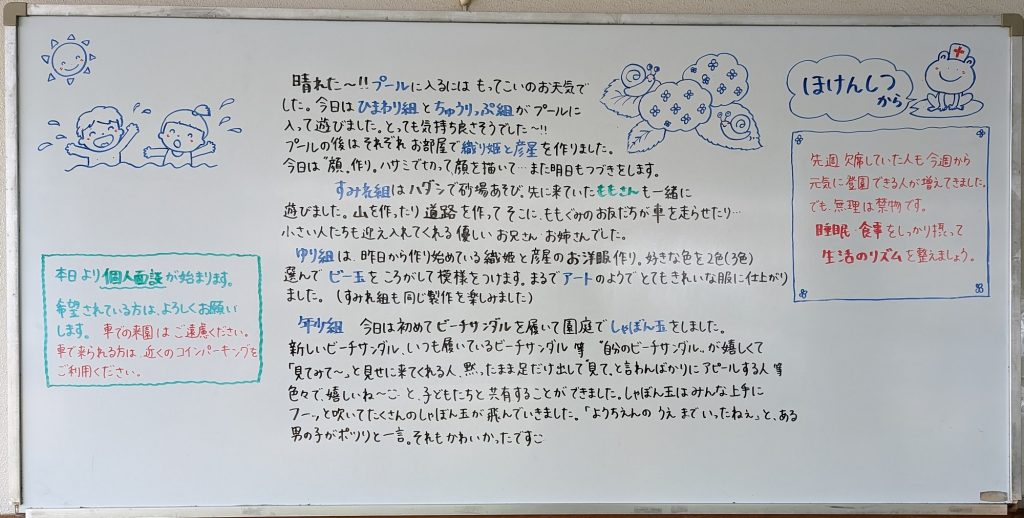 本日より個人面談が始まります。
希望されている方は、よろしくお願い
します。車での来園はご遠慮ください。
車で来られる方は、近くのコインパーキングを
ご利用ください。
晴れた〜!!プールに入るには もってこいのお天気で
した。今日はひまわり組とちゅうりっぷ組がプールに
入って遊びました。とっても気持ち良さそうでした〜!!
プールの後は それぞれ お部屋で織り姫と彦星を作りました。
今日は"顔"作り。ハサミで切って顔を描いて…また明日もつづきをします。
すみれ組はハダシで砂場あそび。先に来ていたももさんも一緒に
遊びました。山を作ったり 道路を作って そこに、ももぐみのお友だちが車を走らせたり…
小さい人たちも迎え入れてくれる優しい お兄さん・お姉さんでした。
ゆり組は、昨日から作り始めている織姫と彦星のお洋服作り。好きな色を2色(3色)
選んで ビー玉をころがして模様をつけます。まるでアートのようで とてもきれいな服に仕上がり
ました。(すみれ組も同じ製作を楽しみました)
年少組 今日は初めてビーチサンダルを履いて園庭でしゃぼん玉をしました。
新しいビーチサンダル、いつも履いているビーチサンダル等 "自分のビーチサンダル"が嬉しくて
「見てみて〜」と見せに来てくれる人、黙ったまま足だけ出して"見て"と言わんばかりにアピールする人 等
色々で、嬉しいね〜 と、子どもたちと共有することができました。しゃぼん玉はみんな上手に
フーッと吹いてたくさんのしゃぼん玉が飛んでいきました。「ようちえんの うえ まで いったねぇ」と、ある
男の子がポツリと一言。それもかわいかったです
ほけんしつ
から
先週 欠席していた人も今週から
元気に登園できる人が増えてきました。
でも、無理は禁物です。
睡眠・食事をしっかり摂って
生活のリズムを整えましょう。